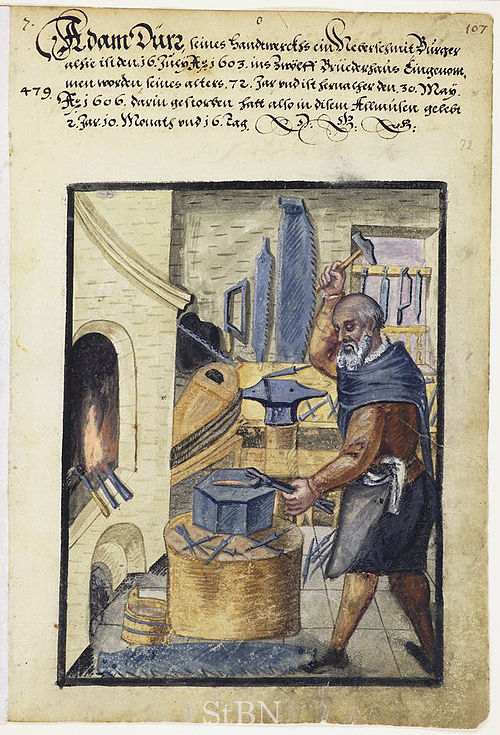 7. 107
Adam Dürr, seines Handtwercks ein Neberschmit Burger
alhie ist den 16. July Aº 1603. ins Zwölff Brüederhaus Eingenom,
men worden seines alters. 72. Jar vnd ist hernacher den. 30. May.
479. Aº 1606. darin gestorben hatt also in disem Allmusen gelebt
2. Jar. 10. Monath vnd 16. Tag.
72
StBN